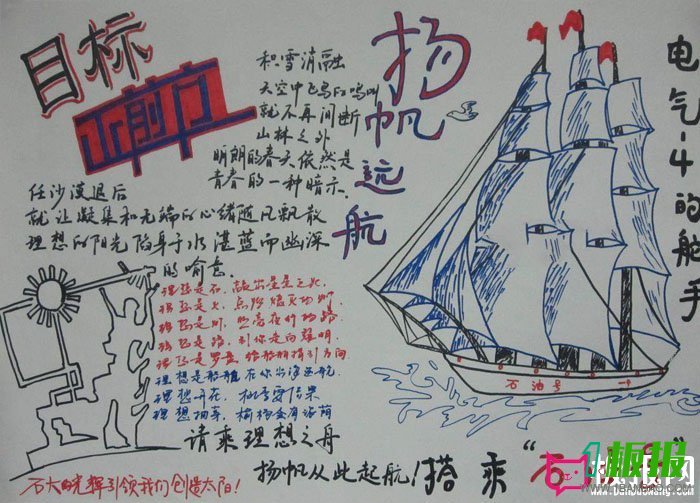 目标
正前方
积雪消融
天空中飞鸟的鸣叫
就不再间断
山林之外
明朗的春天依然是
青春的一种暗示.
任沙漠退后
就让凝集和无端的心绪随风飘散
理想的阳光陷身于水湛蓝而幽深
的喻意.
理想是石,敲出星星之火,
理想是火,点燃熄灭的灯,
理想是灯,照亮夜行的路
理想是路,引你走向黎明.
理想是罗盘,给船舶指引方向
理想是船舶,在你出海远航.
理想开花,
理想抽芽,
请乘理想之舟
扬帆从此起航!搭乘“石油号”
石大的光辉引领我们创造太阳!
扬帆远航
电气-4的舵手
石油号
板报